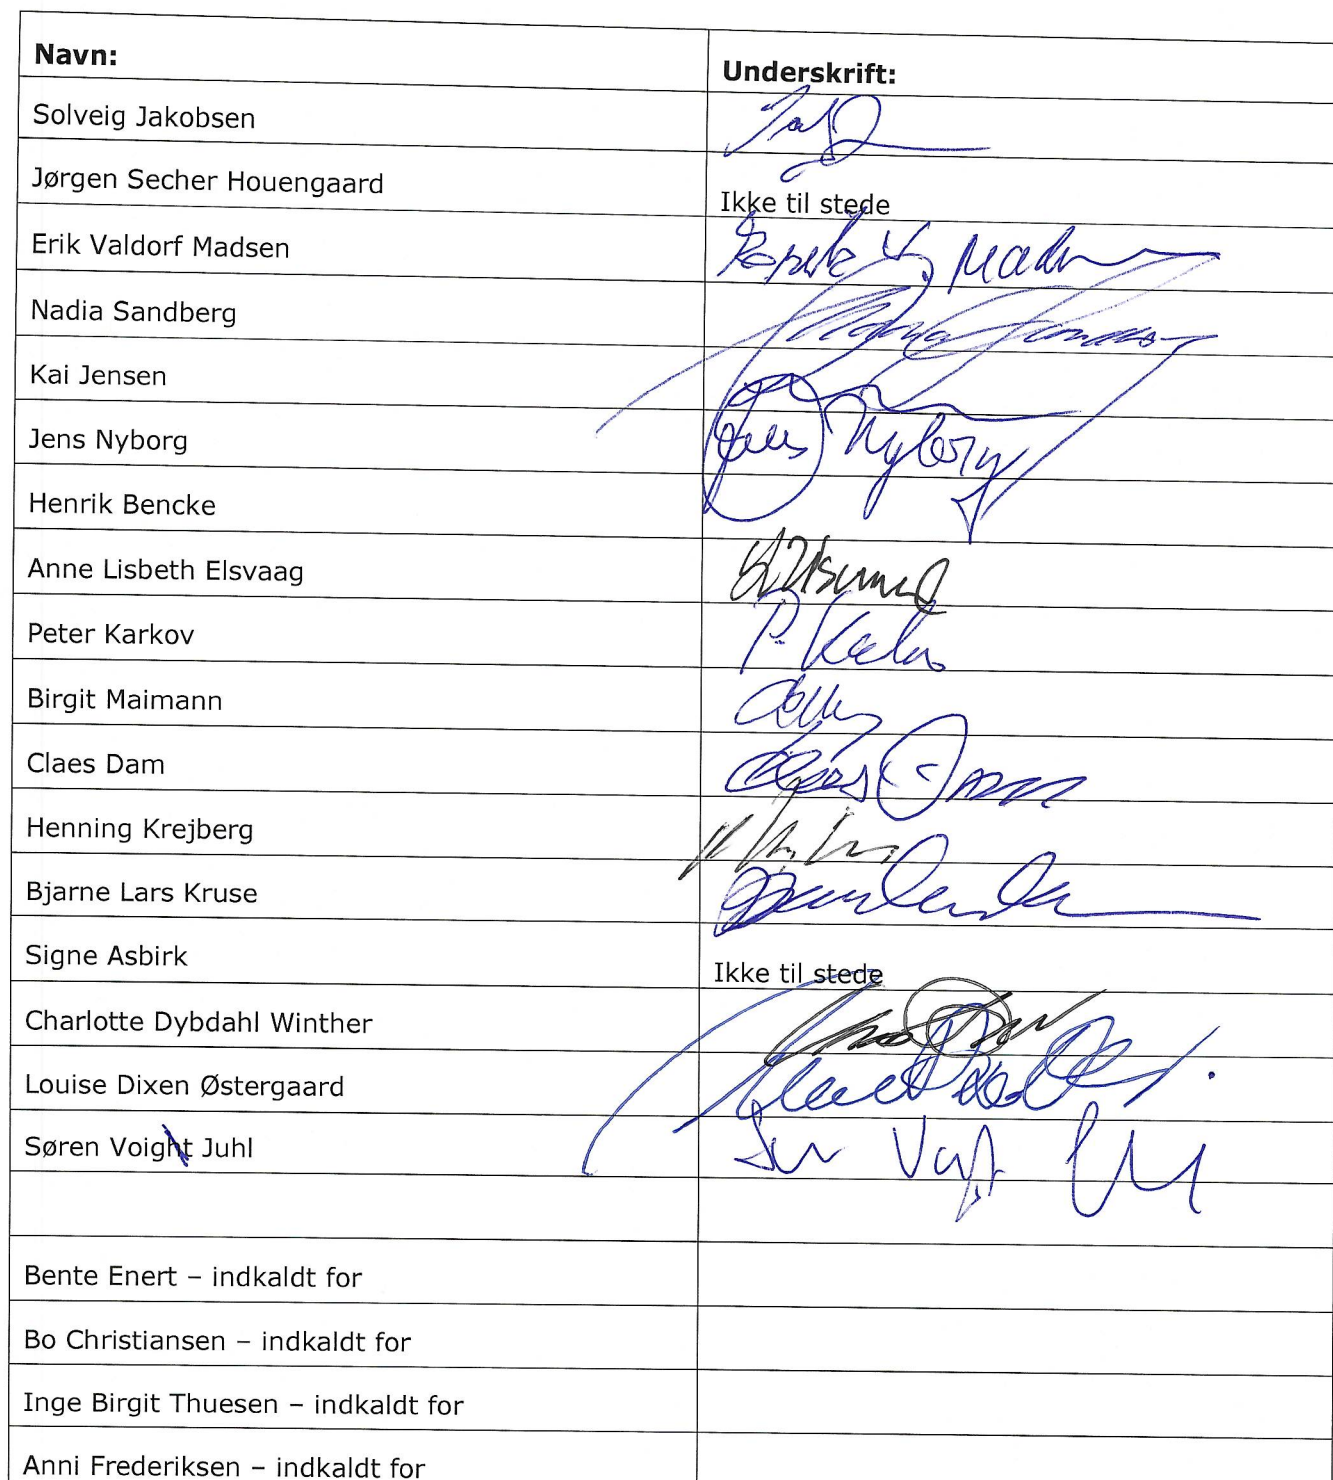 Navn: Underskrift:
Solveig Jakobsen
Jørgen Secher Houengaard Ikke til stede
Erik Valdorf Madsen Erik V. Madsen
Nadia Sandberg
Kai Jensen
Jens Nyborg Jens Nyborg
Henrik Bencke
Anne Lisbeth Elsvaag
Peter Karkov P. Karkov
Birgit Maimann
Claes Dam Claes Dam
Henning Krejberg
Bjarne Lars Kruse
Signe Asbirk Ikke til stede
Charlotte Dybdahl Winther
Louise Dixen Østergaard
Søren Voight Juhl
Bente Enert – indkaldt for
Bo Christiansen – indkaldt for
Inge Birgit Thuesen – indkaldt for
Anni Frederiksen – indkaldt for